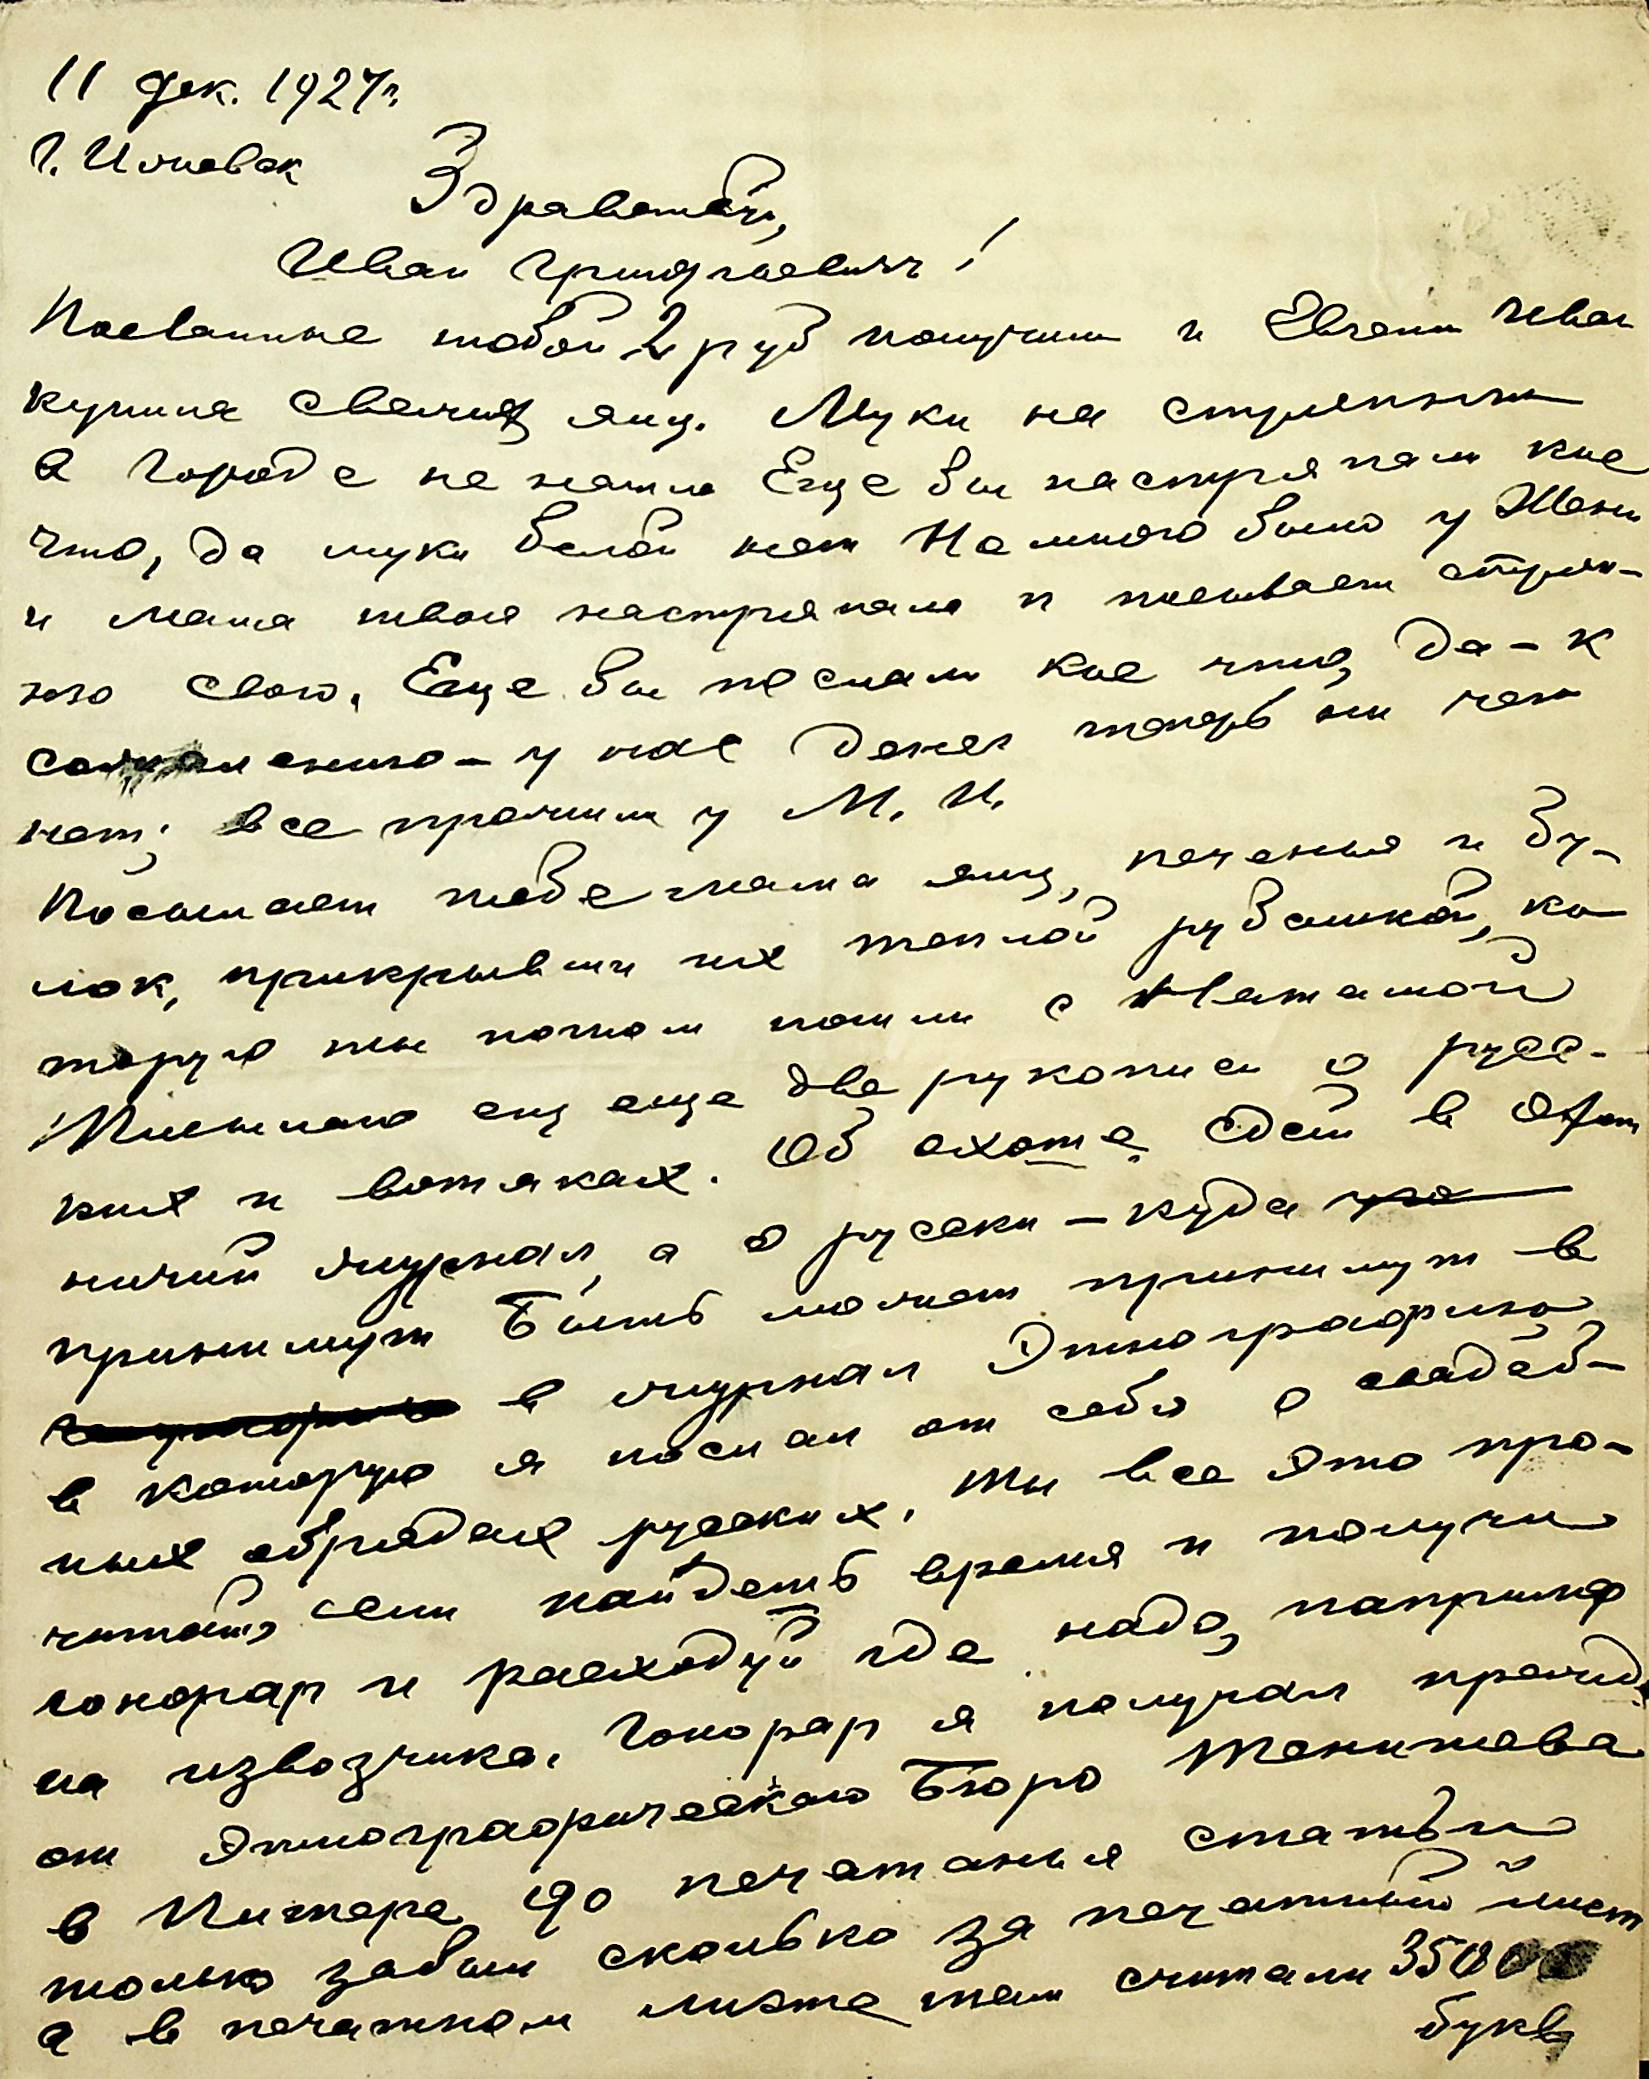 11 дек. 1927г.
г. Ижевск
Здравствуй,
Иван Григорьевич!
Посланные тобой 2 руб получили и Евгени Иван
купила свежих яиц. Муки на стряпню
в городе не нашла Еще бы настряпали кое
что, да муки белой нет Немного было у Жени
и мама твоя настряпала и посылает стряп-
ню свою. Еще бы послали кое что, да - к
сожалению - у нас денег теперь ни чего
нет; все прожили у М. И.
Посылает тебе мама яиц, печенья и бу-
лок, прикрывши их теплой рубашкой, ко
торую ты потом пошли с Наташой
Посылаю ещ еще две рукописи о русс-
ких и вотяках. Об охоте сдай в Охот
ничий журнал, а о русски - куда
примут Быть может примут в
в журнал Этнография
в которую я послал от себя о свадеб-
ных обрядах русских. Ты все это про-
читай, если найдешь время и получи
гонорар и расходуй где надо, наприме
на извозчика. Гонорар я получал прежде
от Этнографического Бюро Тенишева
в Питере до печатания статьи
только забыл сколько за печатный лист
а в печатном листе там считали 35000
букв